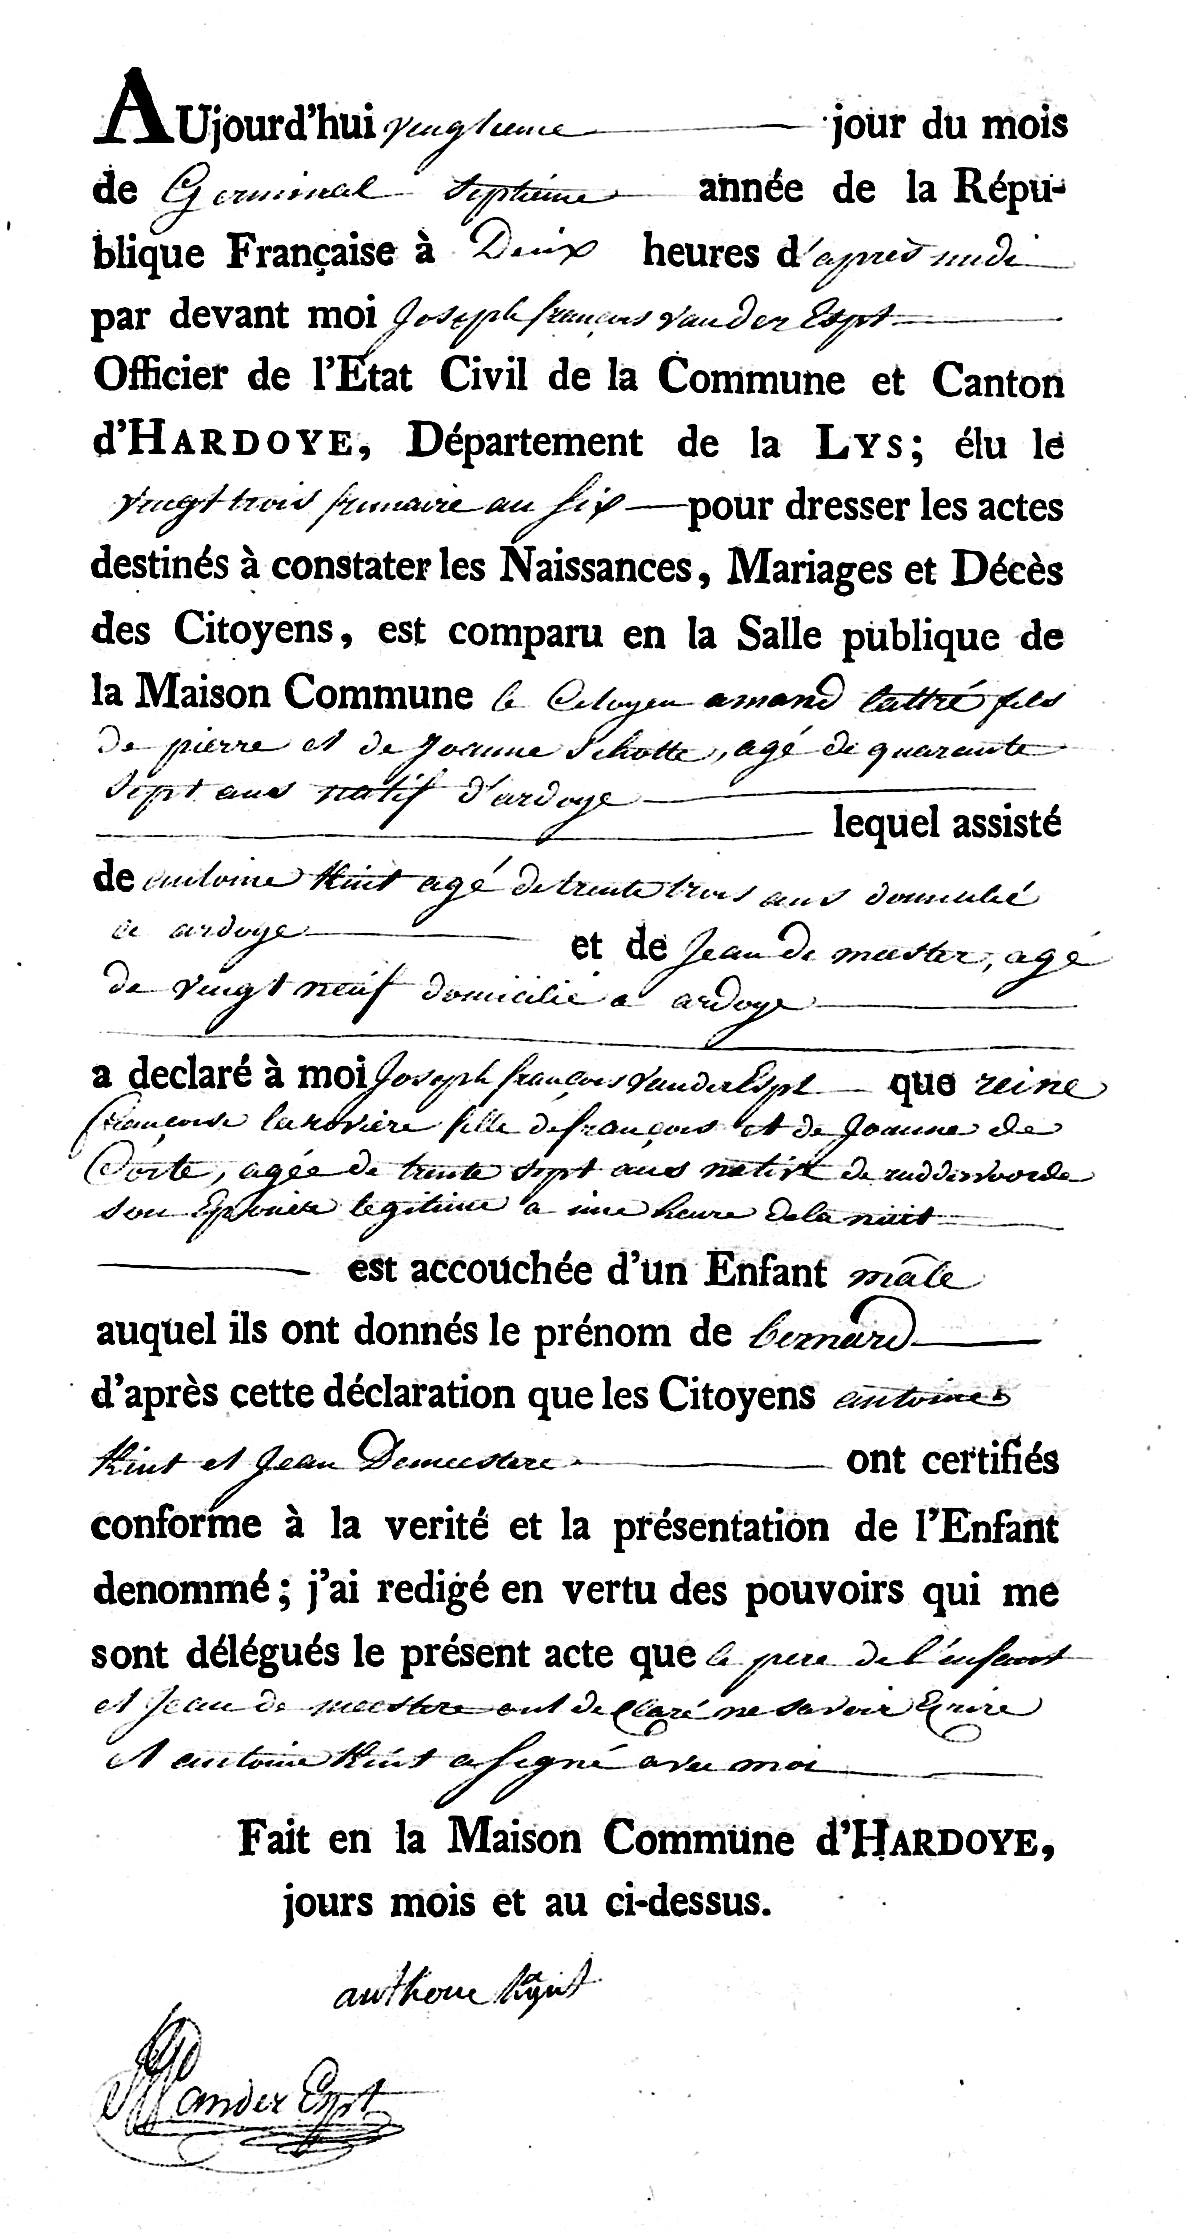 AUjourd'hui vingtieme jour du mois
de Germinal septieme année de la Répu-
blique Française à Deux heures d'apres midi
par devant moi Joseph françois vander Espt
Officier de l'Etat Civil de la Commune et Canton
d'HARDOYE, Département de la LYS; élu le
vingt trois frimaire an six pour dresser les actes
destinés à constater les Naissances, Mariages et Décès
des Citoyens, est comparu en la Salle publique de
la Maison Commune le Citoyen amand lattré fils
de pierre et de Joanne Schotte, agé de quarante
sept ans natif d'ardoye
lequel assisté
de antoine Kint agé de trente trois ans domicilié
a ardoye et de Jean de meester, agé
de vingt neuf domicilié a ardoye
a declaré à moi Joseph françois vander Espt que reine
françoise larivière fille de françois et de Joanne de
Corte, agée de trente sept ans native de ruddervoorde
son Epouse legitime a une heure de la nuit
est accouchée d'un Enfant mâle
auquel ils ont donnés le prénom de bernard
d'après cette déclaration que les Citoyens antoine
Kint et Jean Demeestere ont certifiés
conforme à la verité et la présentation de l'Enfant
denommé; j'ai redigé en vertu des pouvoirs qui me
sont délégués le présent acte que le pere de l'enfant
et Jean de meestere ont declaré ne savoir Ecrire
et antoine Kint a signé avec moi
Fait en la Maison Commune d'HARDOYE,
jours mois et au ci-dessus.
anthone
Vander Espt